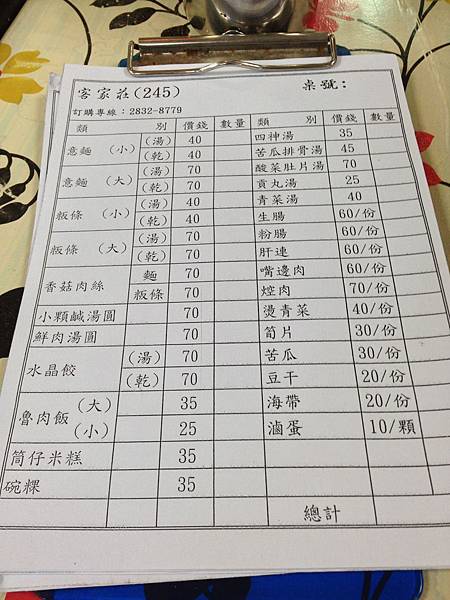 客家莊(245) 桌號:
訂購專線：2832-8779
類 別 價錢 數量 類 別 價錢 數量
意麵 (小) (湯) 40 四神湯 35
(乾) 40 苦瓜排骨湯 45
意麵 (大) (湯) 70 酸菜肚片湯 70
(乾) 70 貢丸湯 25
粄條 (小) (湯) 40 青菜湯 40
(乾) 40 生腸 60/份
粄條 (大) (湯) 70 粉腸 60/份
(乾) 70 肝連 60/份
香菇肉絲 麵 70 嘴邊肉 60/份
粄條 70 焢肉 70/份
小顆鹹湯圓 70 燙青菜 40/份
鮮肉湯圓 70 筍片 30/份
水晶餃 (湯) 70 苦瓜 30/份
(乾) 70 豆干 20/份
魯肉飯 (大) 35 海帶 20/份
(小) 25 滷蛋 10/顆
筒仔米糕 35
碗粿 35
總計